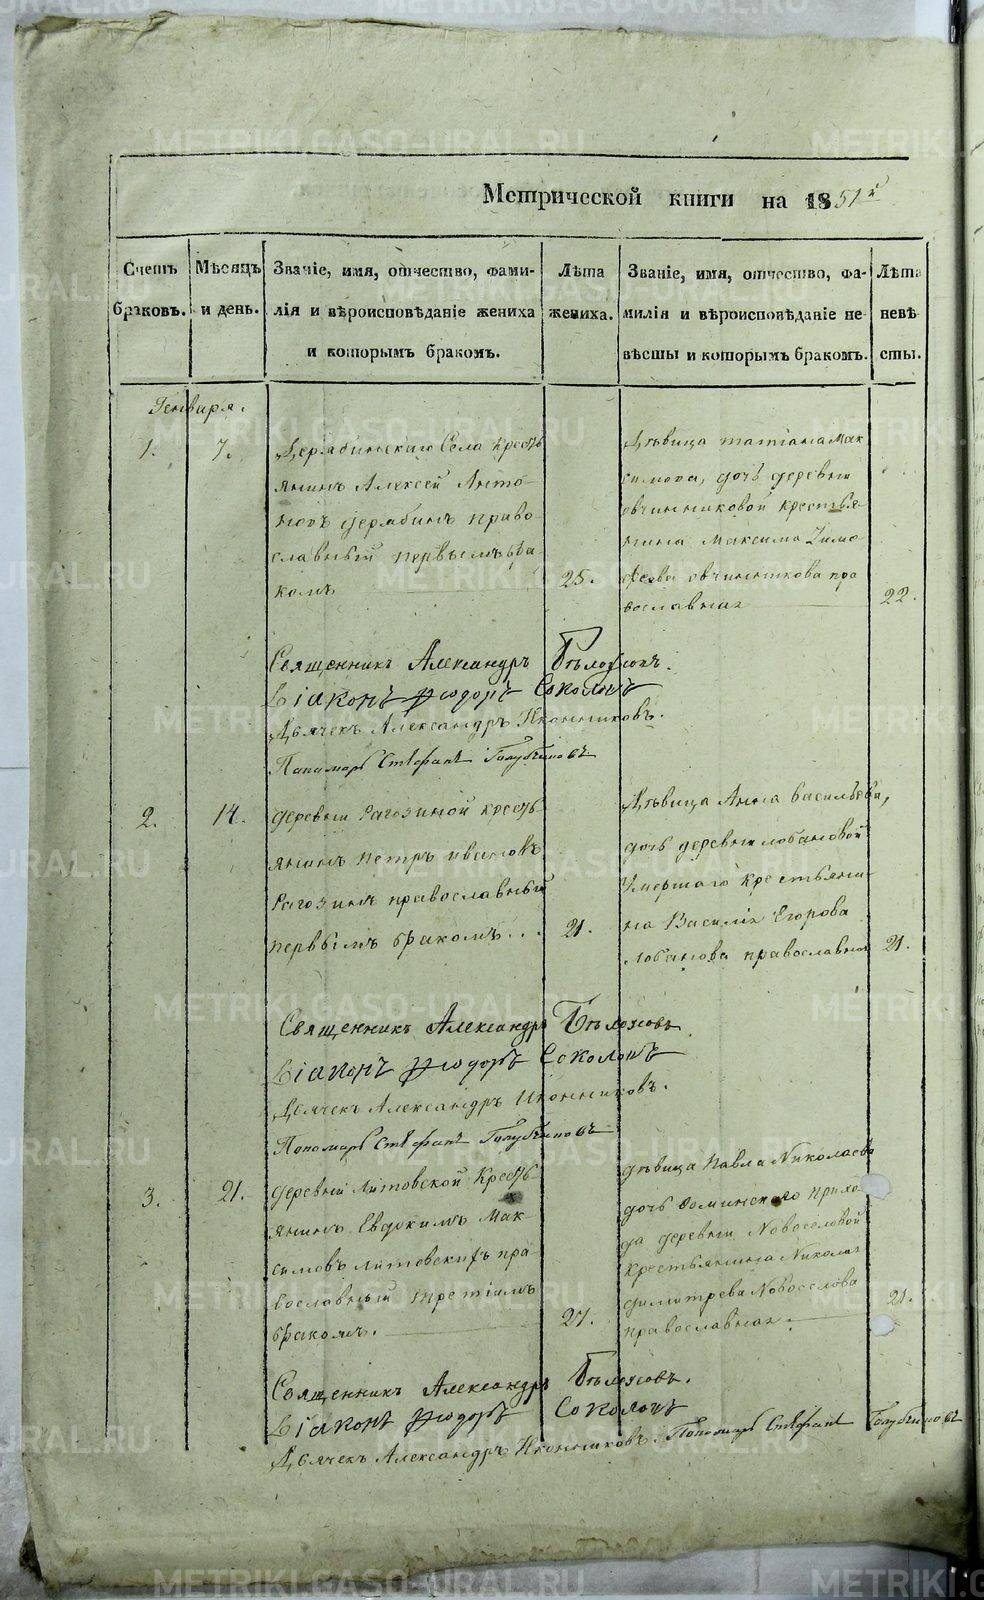 Метрической книги на 1851й
Счетъ браковъ.
Мѣсяцъ и день.
Званіе, имя, отчество, фами-
лія и вѣроисповѣданіе жениха
и которымъ бракомъ.
Лѣта жениха.
Званіе, имя, отчество, фа-
милія и вѣроисповѣданіе не-
вѣсты и которымъ бракомъ.
Лѣта невѣ
сты.
Генваря.
1.
7.
Дерябинскаго Села крестъ
янинъ Алексей Анто-
новъ дерябинъ право
славный первымъ бра
комъ
25.
Дѣвица татіана Мак
симова, дочь деревни
овчинниковой крестья-
нина Максима Тимо
феева овчинникова пра
вославная
22.
Священникъ Александръ
Діаконъ Ѳеодоръ Соколовъ
Дьячекъ Александръ Иконниковъ.
Пономарь Стефанъ
2.
14.
деревни Рагозиной кресть
янинъ петръ ивановъ
Рагозинъ православный
первымъ бракомъ...
21.
Дѣвица Анна васильева,
дочь деревни лобановой
Умершаго крестьяни
на Василія Егорова
лобанова православная
21.
Священникъ Александръ
Діаконъ Ѳеодоръ Соколовъ
Дьячекъ Александръ Иконниковъ.
Пономарь Стефанъ
3.
21.
деревни Литовской Кресть
янинъ Евдокимъ Мак-
симовъ литовскихъ пра
вославный третіимъ
бракомъ.
27.
дѣвица Павла Николаева
дочь Фоминского прихо
да деревни Новоселовой
крестьянина Николая
димитрева Новоселова
православная.
21.
Священникъ Александръ
Діаконъ Ѳеодоръ Соколовъ
Дьячекъ Александръ Иконниковъ. Пономарь Стефанъ
METRIKI.GASO-URAL.RU